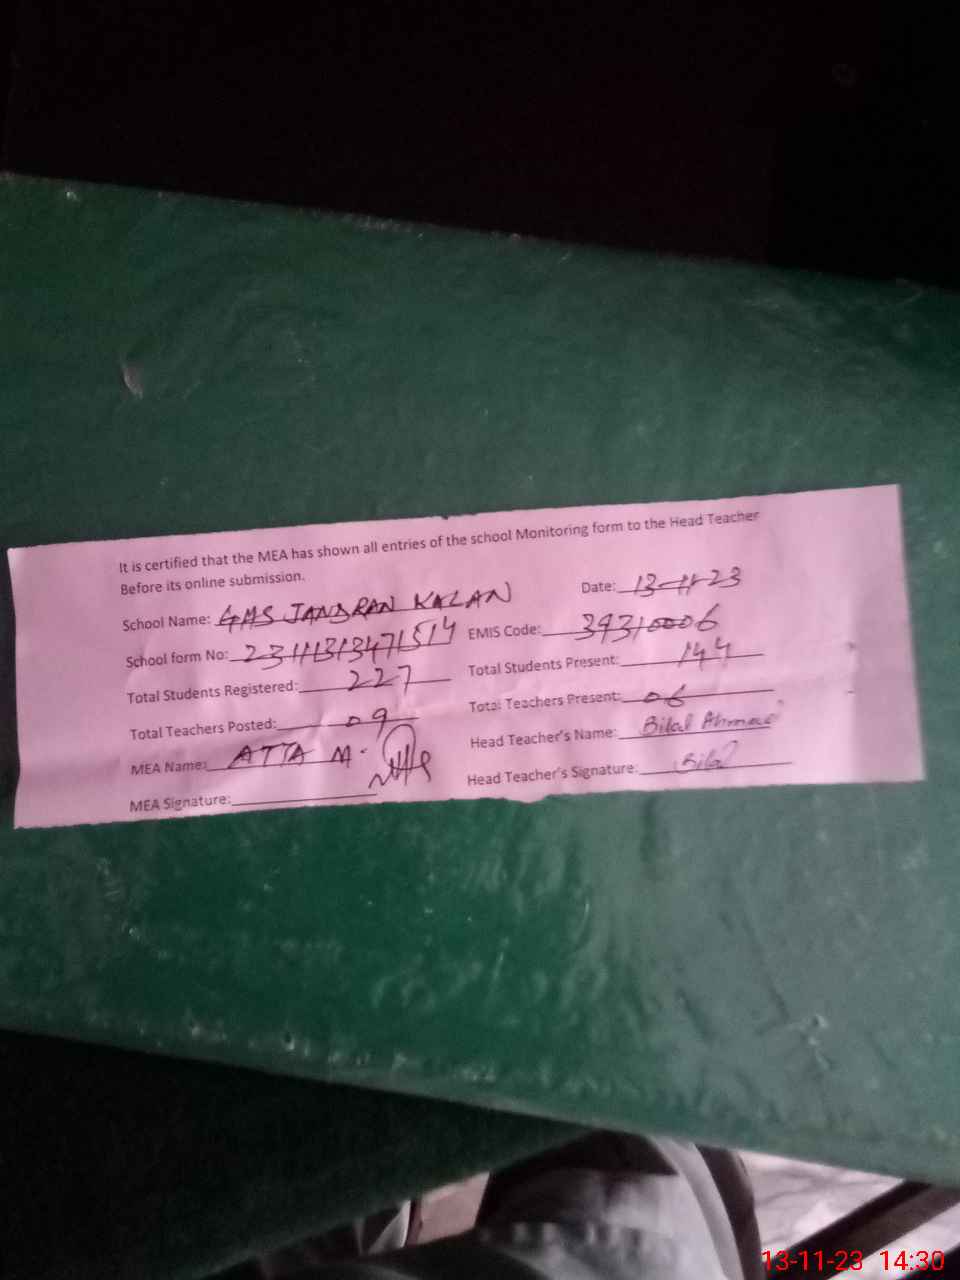 It is certified that the MEA has shown all entries of the school Monitoring form to the Head Teacher
Before its online submission.
School Name: GMS JANDRAN KALAN Date: 13-11-23
School form No: 23111313471514 EMIS Code: 39310006
Total Students Registered: 227 Total Students Present: 144
Total Teachers Posted: 09 Total Teachers Present: 06
MEA Name: ATTA M. Head Teacher's Name: Bilal Ahmad
MEA Signature: Head Teacher's Signature: Bilal
13-11-23 14:30